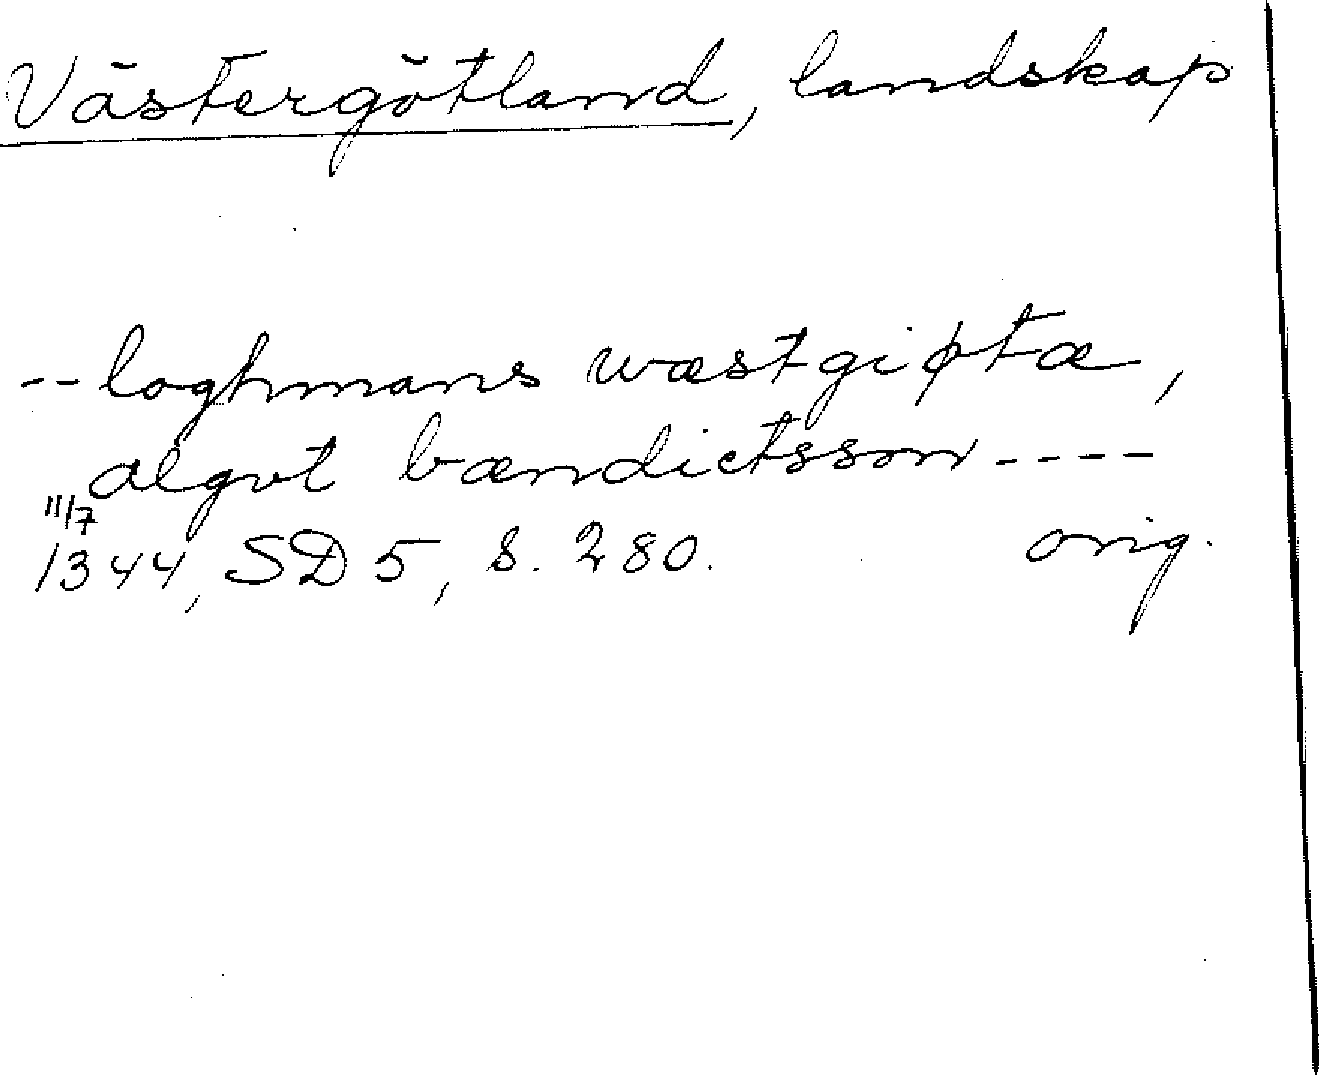 Västergötland, landskap
-- loghmans wæstgiøtæ,
algot bændictsson ----
11/7
1344, SD 5, s. 280. orig.